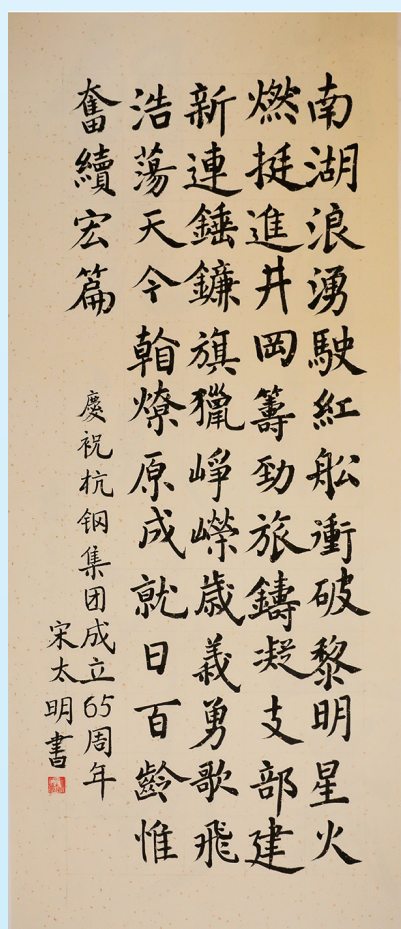 南湖浪湧駛紅船衝破黎明星火
燃挺進井岡籌勁旅鑄凝支部建
新連錘鐮旗獵崢嶸歲義勇歌飛
浩蕩天今翰燎原成就日百齡惟
奮續宏篇
慶祝杭钢集团成立65周年
宋太明書